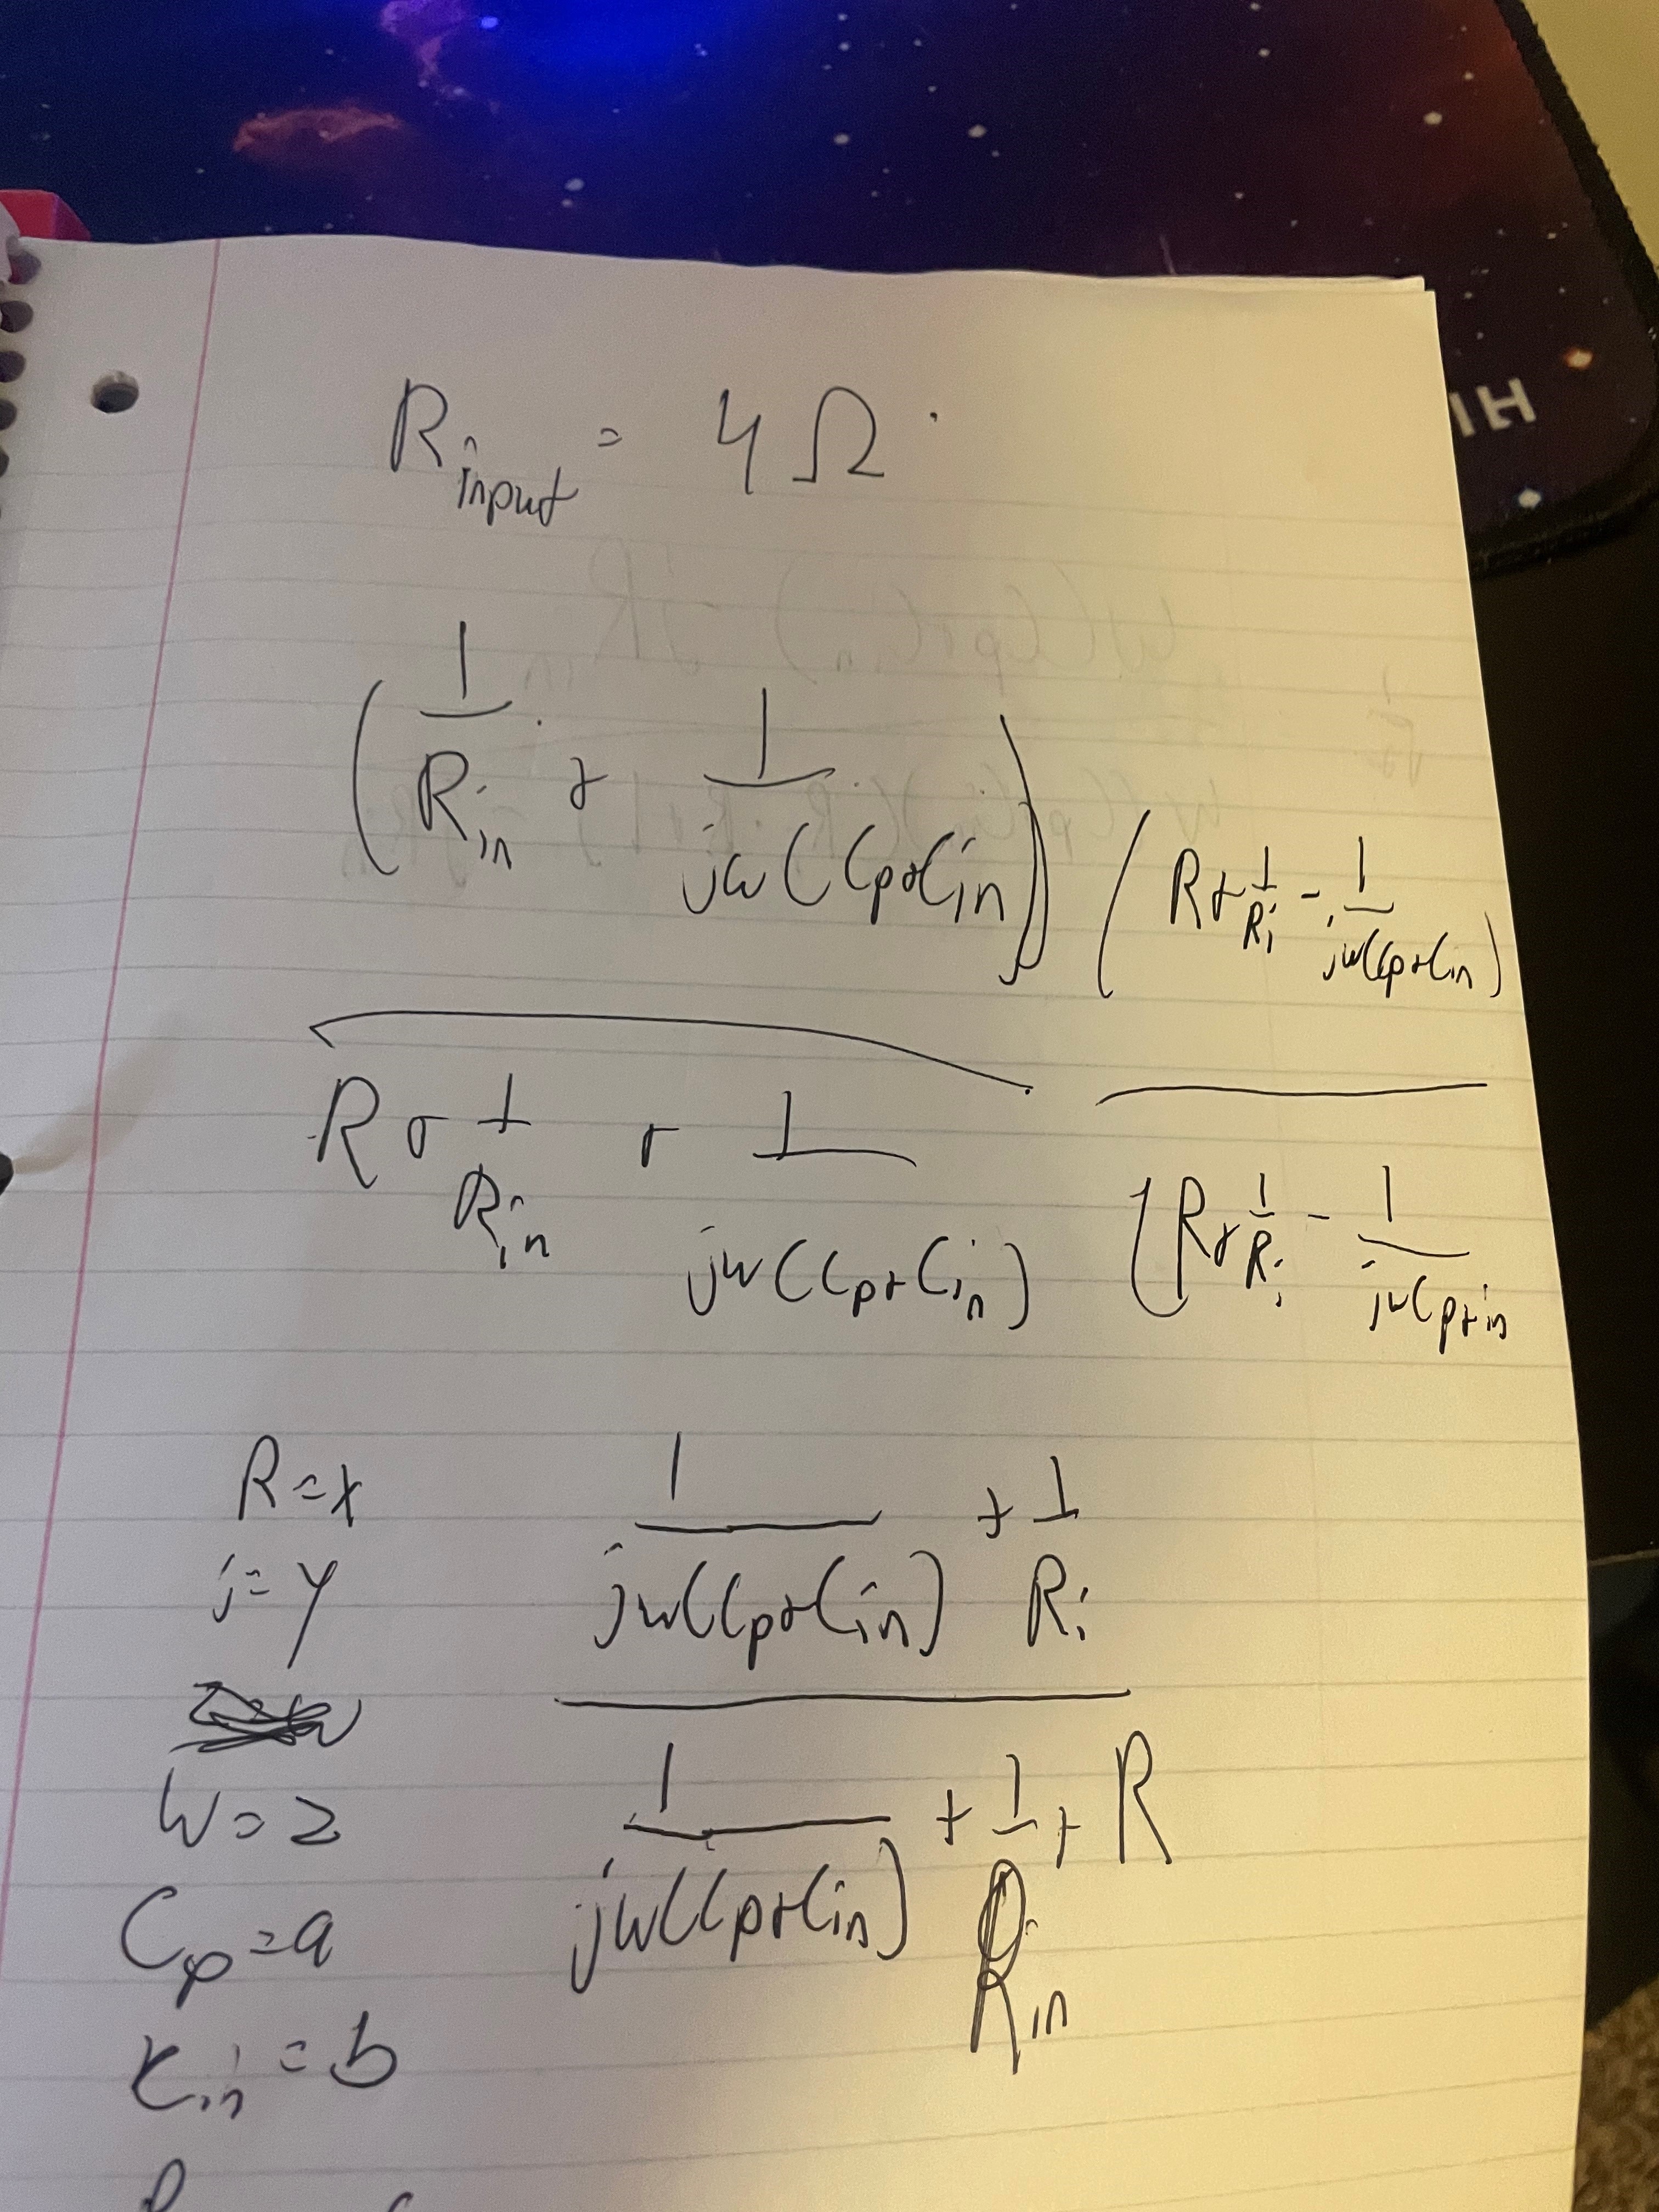 HI
R_input = 4 Ω
(1/R_in + 1/jw(Cp+Cin)) (R+1/Ri - 1/jw(Cp+Cin))
R + 1/R_in + 1/jw(Cp+Cin) (R+1/Ri - 1/jwCp+in
R=x
j=y
W=z
Cp=a
Cin=b
1/jw(Cp+Cin) + 1/Ri
1/jw(Cp+Cin) + 1/Rin + R